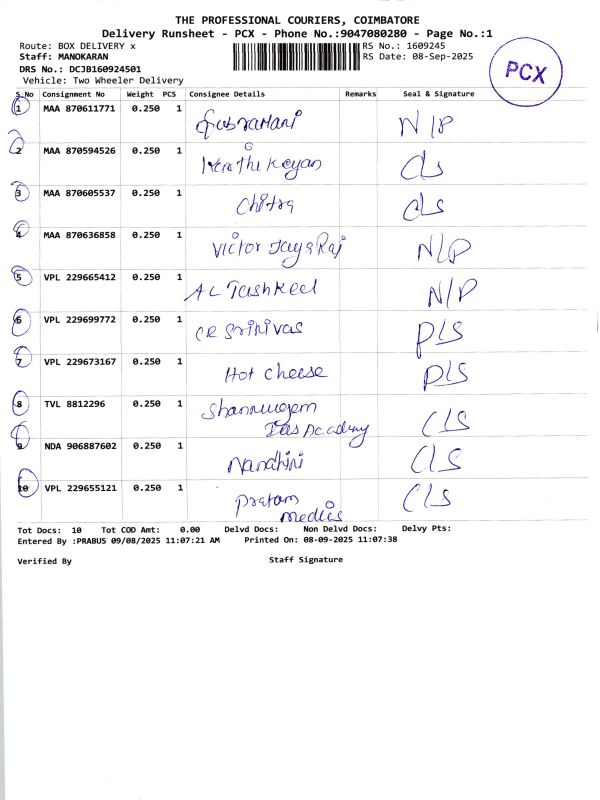 THE PROFESSIONAL COURIERS, COIMBATORE
Delivery Runsheet - PCX - Phone No.:9047080280 - Page No.:1
Route: BOX DELIVERY x RS No.: 1609245
Staff: MANOKARAN RS Date: 08-Sep-2025
DRS No.: DCJB160924501
Vehicle: Two Wheeler Delivery
PCX
S.No Consignment No Weight PCS Consignee Details Remarks Seal & Signature
1 MAA 870611771 0.250 1 Subramani N/P
2 MAA 870594526 0.250 1 Karthikeyan CLS
3 MAA 870605537 0.250 1 Chitra CLS
4 MAA 870636858 0.250 1 Victor JayaRaj N/P
5 VPL 229665412 0.250 1 A L Tashkeel N/P
6 VPL 229699772 0.250 1 CR Srinivas PLS
7 VPL 229673167 0.250 1 Hot cheese PLS
8 TVL 8812296 0.250 1 Shanmugam
Ias Academy CLS
9 NDA 906887602 0.250 1 Nandhini CLS
10 VPL 229655121 0.250 1 CLS
Tot Docs: 10 Tot COD Amt: 0.00 Delvd Docs: Non Delvd Docs: Delvy Pts:
Entered By :PRABUS 09/08/2025 11:07:21 AM Printed On: 08-09-2025 11:07:38
Verified By Staff Signature